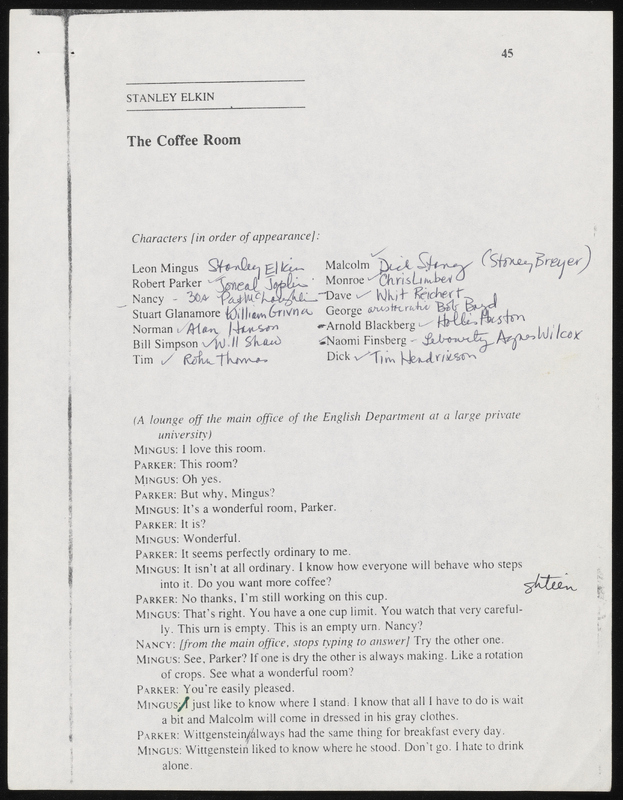 45
STANLEY ELKIN
The Coffee Room
Characters [in order of appearance]:
Leon Mingus Stanley Elkin
Robert Parker ✓ Joneal Joplin
Nancy - 30s Pat McLaughlin
Stuart Glanamore William Grivna
Norman ✓ Alan Hanson
Bill Simpson ✓ Will Shaw
Tim ✓ Rohn Thomas
Malcolm ✓ Dick Stoney (Stoney Breyer)
Monroe ✓ Chris Limber
Dave ✓ Whit Reichert
George aristocratic Bob Bard
Arnold Blackberg ✓ Hollis Huston
Naomi Finsberg - Lebowitz Agnes Wilcox
Dick ✓ Tim Hendrixson
(A lounge off the main office of the English Department at a large private
university)
MINGUS: I love this room.
PARKER: This room?
MINGUS: Oh yes.
PARKER: But why, Mingus?
MINGUS: It's a wonderful room, Parker.
PARKER: It is?
MINGUS: Wonderful.
PARKER: It seems perfectly ordinary to me.
MINGUS: It isn't at all ordinary. I know how everyone will behave who steps
into it. Do you want more coffee?
shtein
PARKER: No thanks, I'm still working on this cup.
MINGUS: That's right. You have a one cup limit. You watch that very careful-
ly. This urn is empty. This is an empty urn. Nancy?
NANCY: [from the main office, stops typing to answer] Try the other one.
MINGUS: See, Parker? If one is dry the other is always making. Like a rotation
of crops. See what a wonderful room?
PARKER: You're easily pleased.
MINGUS: I just like to know where I stand. I know that all I have to do is wait
a bit and Malcolm will come in dressed in his gray clothes.
PARKER: Wittgenstein/always had the same thing for breakfast every day.
MINGUS: Wittgenstein liked to know where he stood. Don't go. I hate to drink
alone.